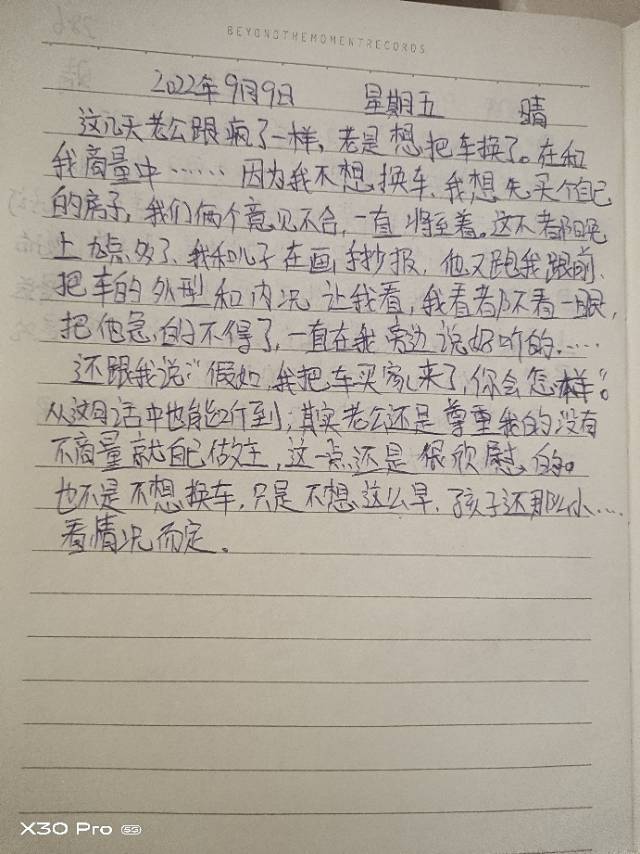 BEYONDTHEMOMENTRECORDS
2022年9月9日 星期五 晴
这几天老公跟疯了一样,老是想把车换了。在和
我商量中……因为我不想换车,我想先买个自己
的房子,我们俩个意见不合,一直将至着。这不都晚
上九点多了,我和儿子在画手抄报,他又跑我跟前,
把车的外型和内况让我看,我看都不看一眼,
把他急的不得了,一直在我旁边说好听的……
还跟我说:“假如,我把车买家来了,你会怎样”。
从这句话中也能听到;其实老公还是尊重我的没有
不商量就自己做主,这一点还是很欣慰的。
也不是不想换车,只是不想这么早,孩子还那么小……
看情况而定。
X30 Pro 5G